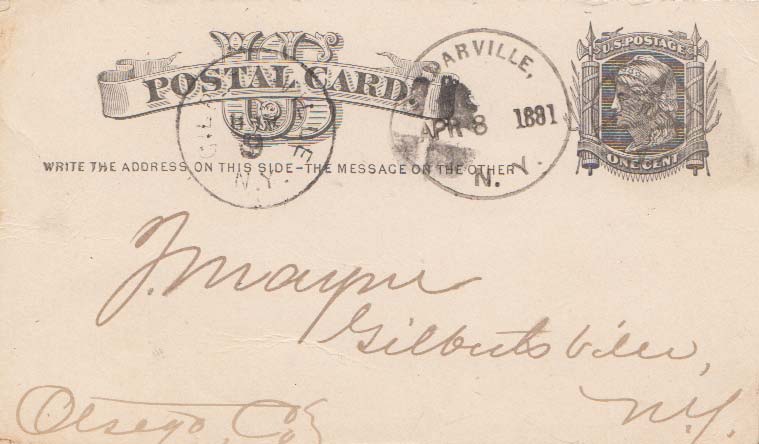 U.S. POSTAGE
POSTAL CARD.
ARVILLE,
APR 8 1881
N. Y.
9
N.Y.
ONE CENT
WRITE THE ADDRESS ON THIS SIDE-THE MESSAGE ON THE OTHER
J. Mayne
Gilbertsville,
Otsego, Co,
N.Y.